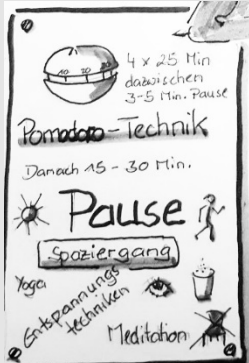 4 x 25 Min
dazwischen
3-5 Min. Pause
10 20
Pomodoro-Technik
Danach 15 - 30 Min.
Pause
Spaziergang
Yoga
Entspannungs
techniken
Meditation